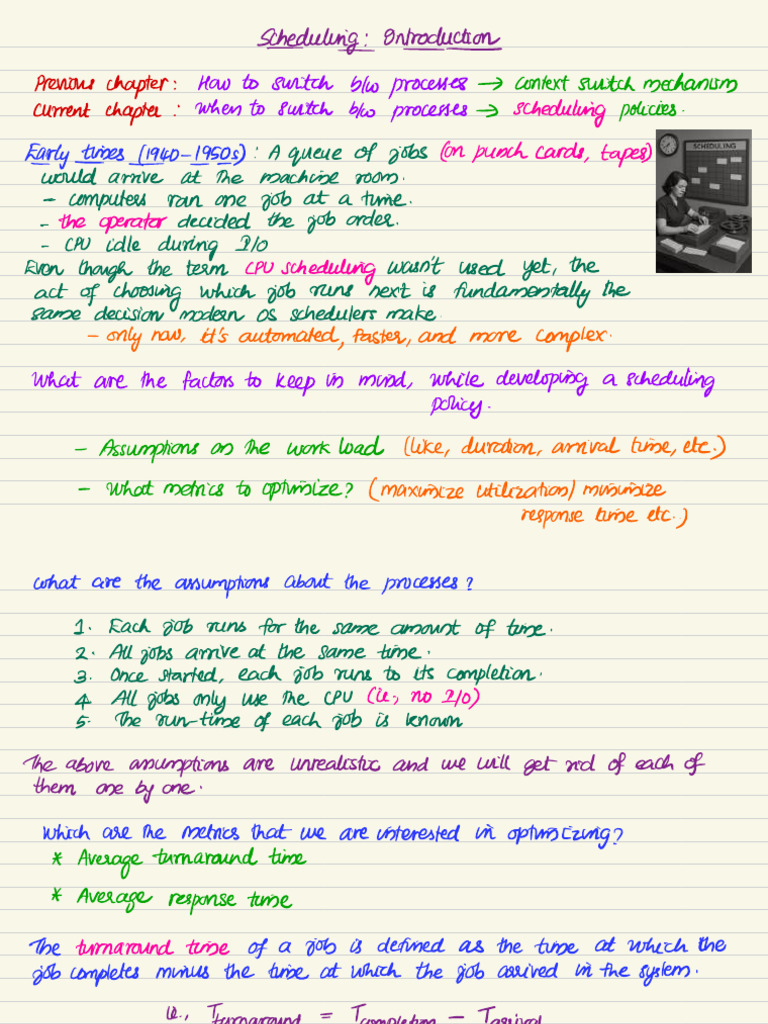 Scheduling: Introduction
Previous chapter: How to switch b/w processes → context switch mechanism
Current chapter: when to switch b/w processes → scheduling policies.
Early times (1940-1950s): A queue of jobs (on punch cards, tapes)
would arrive at the machine room.
- computers ran one job at a time.
- the operator decided the job order.
- CPU idle during I/O
SCHEDULING
Even though the term CPU scheduling wasn't used yet, the
act of choosing which job runs next is fundamentally the
same decision modern OS schedulers make.
- only now, it's automated, faster, and more complex.
What are the factors to keep in mind, while developing a scheduling
policy.
- Assumptions on the work load (like, duration, arrival time, etc.)
- What metrics to optimize? (maximize utilization/ minimize
response time etc.)
what are the assumptions about the processes?
1. Each job runs for the same amount of time.
2. All jobs arrive at the same time.
3. Once started, each job runs to its completion.
4. All jobs only use the CPU (i.e., no I/O)
5. The run-time of each job is known
The above assumptions are unrealistic and we will get rid of each of
them one by one.
Which are the metrics that we are interested in optimizing?
* Average turnaround time
* Average response time
The turnaround time of a job is defined as the time at which the
job completes minus the time at which the job arrived in the system.
i.e., Tturnaround = Tcompletion - Tarrival